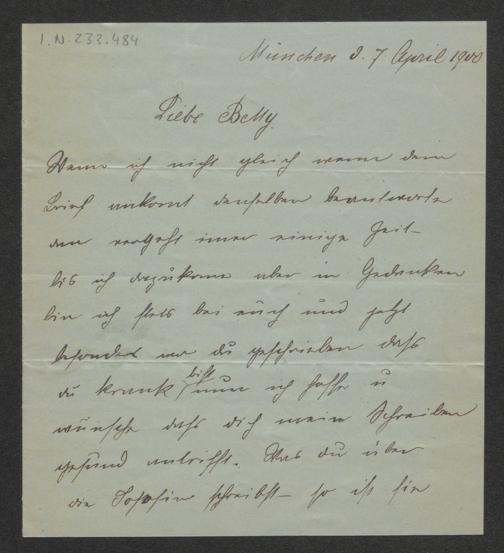 I.N.233.484
München d. 7 April 1900
Liebe Betty
Wenn ich nicht gleich wenn dein
Brief ankomt denselben beantworte
dan vergeht imer einige Zeit
bis ich dazukome aber in Gedanken
bin ich stets bei euch und jetzt
besonders wo du geschrieben dass
du krank bist nun ich hoffe u
wünsche dass dich mein Schreiben
gesund antrifft. Was du über
die schreibst so ist sie